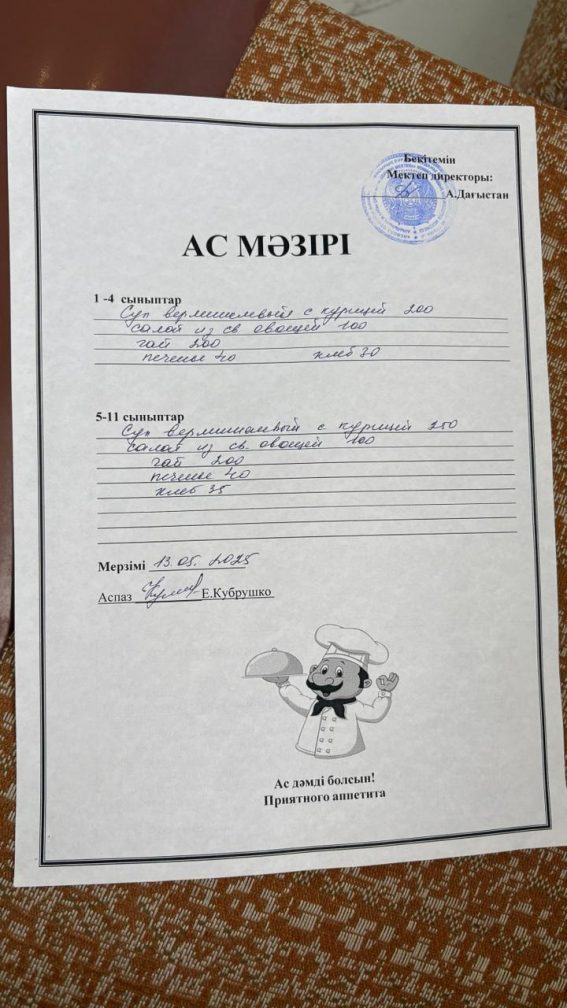 Бекітемін
Мектеп директоры:
А.Дағыстан
АС МӘЗІРІ
1 -4 сыныптар
Суп вермишелевый с курицей 200
салат из св овощей 100
чай 200
печенье 40 хлеб 30
5-11 сыныптар
Суп вермишелевый с курицей 250
салат из св. овощей 100
чай 200
печенье 40
хлеб 35
Мерзімі 13.05.2025
Аспаз Е.Кубрушко
Ас дәмді болсын!
Приятного аппетита